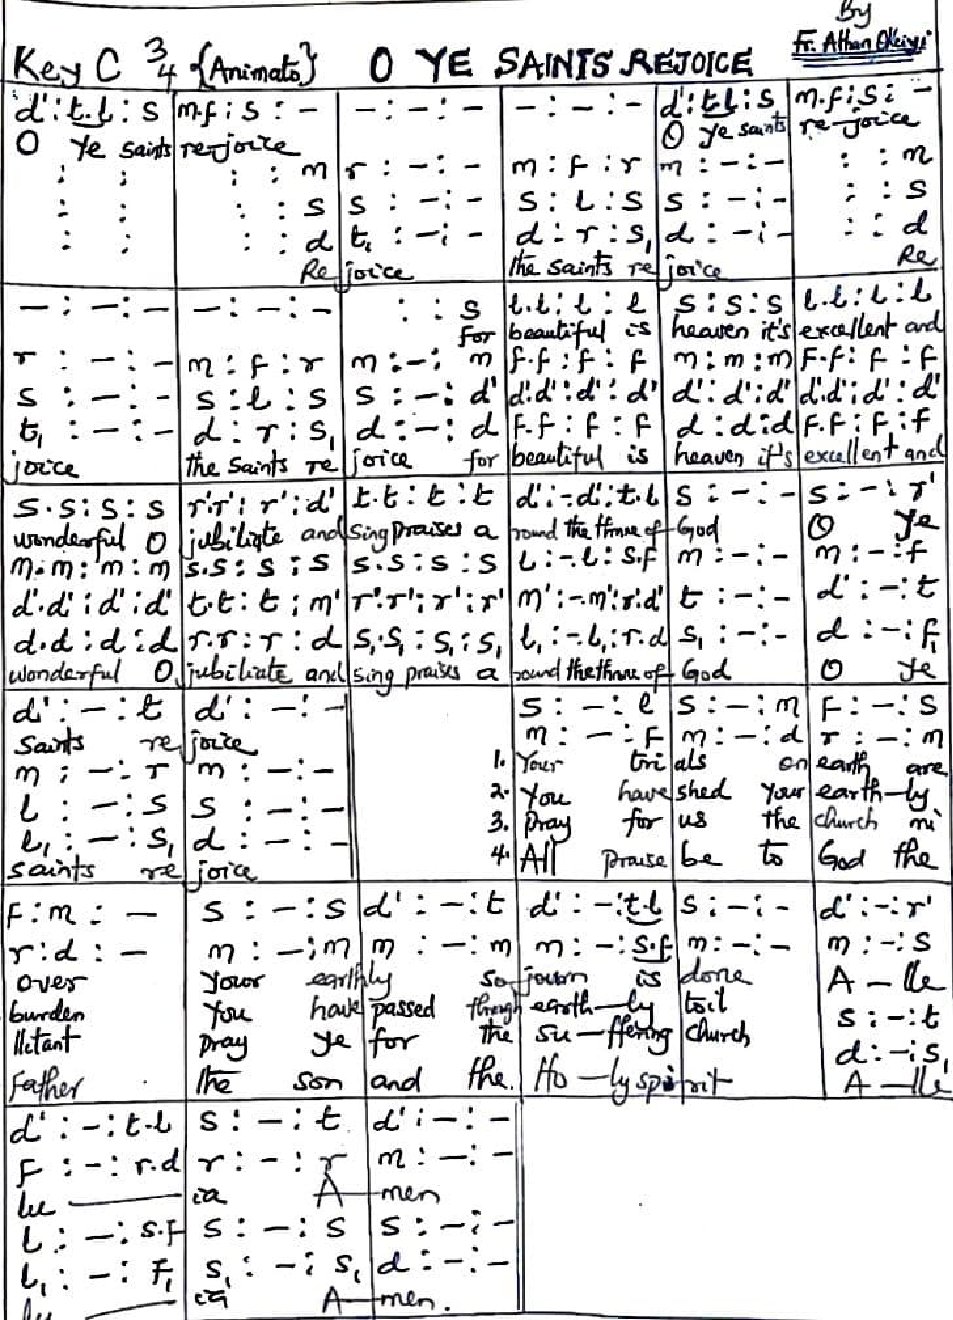 By
Key C 3/4 {Animato} O YE SAINTS REJOICE Fr. Athan Okeiyi
d' : t.l : s | m.f : s : - | - : - : - | - : - : - | d' : t.l : s | m.f : s : -
O ye saints rejoice O ye saints re-joice
: : | : : m | r : - : - | m : f : r | m : - : - | : : m
: : | : : s | s : - : - | s : l : s | s : - : - | : : s
: : | : : d | t, : - : - | d : r : s, | d : - : - | : : d
Re joice the saints re joice Re
- : - : - | - : - : - | : : s | l.l : l : l | s : s : s | l.l : l : l
for beautiful is heaven it's excellent and
r : - : - | m : f : r | m : - : m | f.f : f : f | m : m : m | f.f : f : f
s : - : - | s : l : s | s : - : d' | d'.d' : d' : d' | d' : d' : d' | d'.d' : d' : d'
t, : - : - | d : r : s, | d : - : d | f.f : f : f | d : d : d | f.f : f : f
joice the saints re joice for beautiful is heaven it's excellent and
s.s : s : s | r'.r' : r' : d' | t.t : t : t | d' : -.d' : t.l | s : - : - | s : - : r'
wonderful O jubiliate and sing praises a round the throne of God O ye
m.m : m : m | s.s : s : s | s.s : s : s | l : -.l : s.f | m : - : - | m : - : f
d'.d' : d' : d' | t.t : t : m' | r'.r' : r' : r' | m' : -.m' : r'.d' | t : - : - | d' : - : t
d.d : d : d | r.r : r : d | s,.s, : s, : s, | l, : -.l, : r.d | s, : - : - | d : - : f,
wonderful O jubiliate and sing praises a round the throne of God O ye
d' : - : t | d' : - : - | s : - : l | s : - : m | f : - : s
saints re joice m : - : f | m : - : d | r : - : m
m : - : r | m : - : - 1. Your trials on earth are
l : - : s | s : - : - 2. You have shed your earth-ly
l, : - : s, | d : - : - 3. Pray for us the church mi
saints re joice 4. All praise be to God the
f : m : - | s : - : s | d' : - : t | d' : - : t.l | s : - : - | d' : - : r'
r : d : - | m : - : m | m : - : m | m : - : s.f | m : - : - | m : - : s
over your earthly so-journ is done A - lle
burden you have passed through earth-ly toil s : - : t
litant pray ye for the su-ffering church d : - : s,
Father the son and the Ho-ly spirit A - lle
d' : - : t.l | s : - : t | d' : - : -
f : - : r.d | r : - : r | m : - : -
lu ia A-men
l : - : s.f | s : - : s | s : - : -
l, : - : f, | s, : - : s, | d : - : -
lu ia A-men.